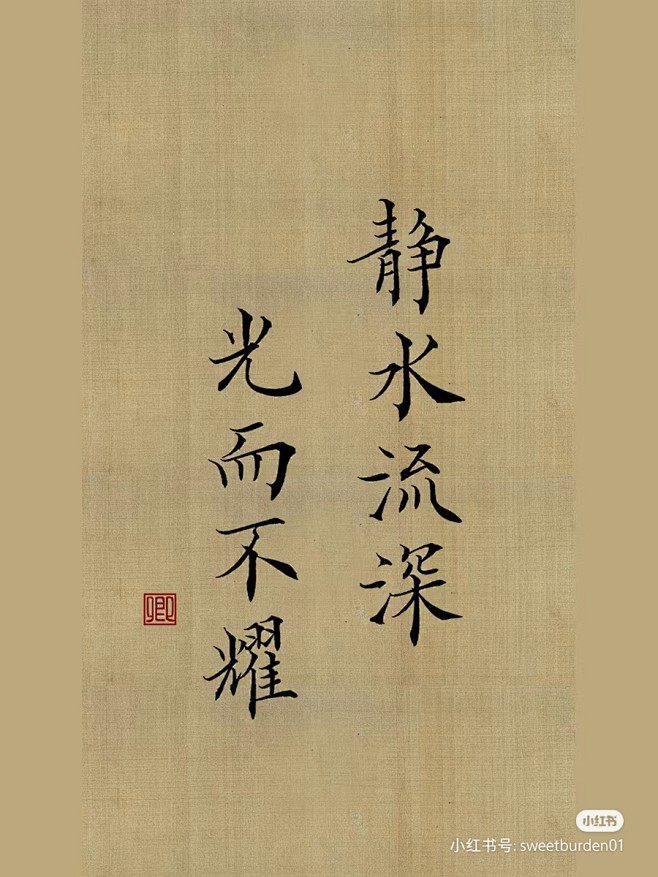 静水流深
光而不耀
卿
小红书
小红书号: sweetburden01